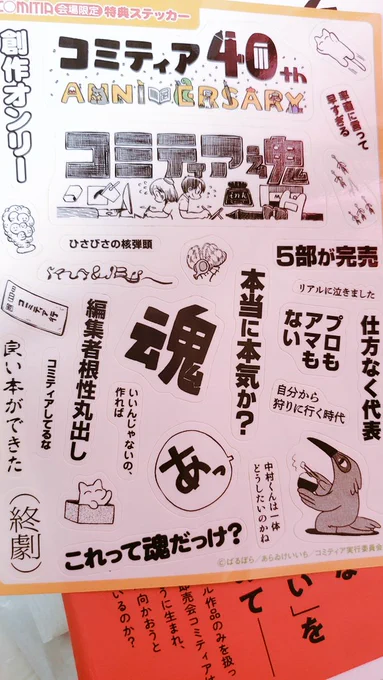 COMITIA 会場限定 特典ステッカー
創作オンリー
コミティア40th
ANNIVERSARY
コミティア魂
ink
率直に言って
早すぎる
ひさびさの核弾頭
5部が完売
リアルに泣きました
コミティア行
本当に本気か?
プロも
アマも
ない
仕方なく代表
魂
編集者根性丸出し
コミティアしてるな
良い本ができた
いいんじゃないの、
作れば
自分から
狩りに行く時代
あっ
中村くんは一体
どうしたいのかね
(終劇)
これって魂だっけ?
©ばるぼら/あらゐけいいち/コミティア実行委員会
い」を
て――
ル作品のみを扱っ
即売会コミティアは
うに生まれ、
向かおうと
いるのか?